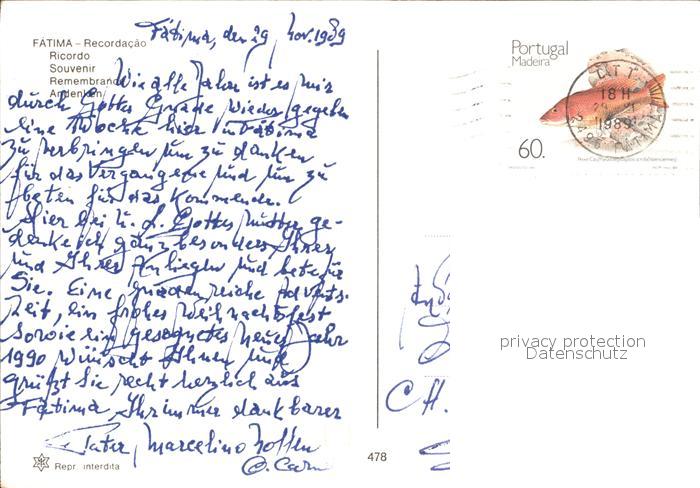 Fátima, den 29. Nov. 1989
FÁTIMA – Recordação
Ricordo
Souvenir
Remembrance
Andenken
Wie alle Jahre ist es mir
durch Gottes Gnade wieder gegeben
eine Woche hier in Fátima
zu verbringen um zu danken
für das Vergangene und um zu
beten für das Kommende.
Hier bei U. L. Gottesmutter ge-
denke ich ganz besonders Ihrer
und Ihrer Anliegen und bete für
Sie. Eine gnadenreiche Advents-
zeit, ein frohes Weihnachtsfest
sowie ein gesegnetes neues Jahr
1990 wünscht Ihnen und
grüßt Sie recht herzlich aus
Fátima, Ihr immer dankbarer
Pater Marcelino
O. Carm
Repr. interdita
478
Portugal
Madeira
60.
CTT
18 H
1989
2496 FATIMA
CH.
privacy protection
Datenschutz